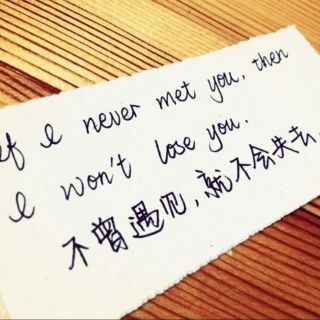 If I never met you, then
I won't lose you.
不曾遇见,就不会失去.